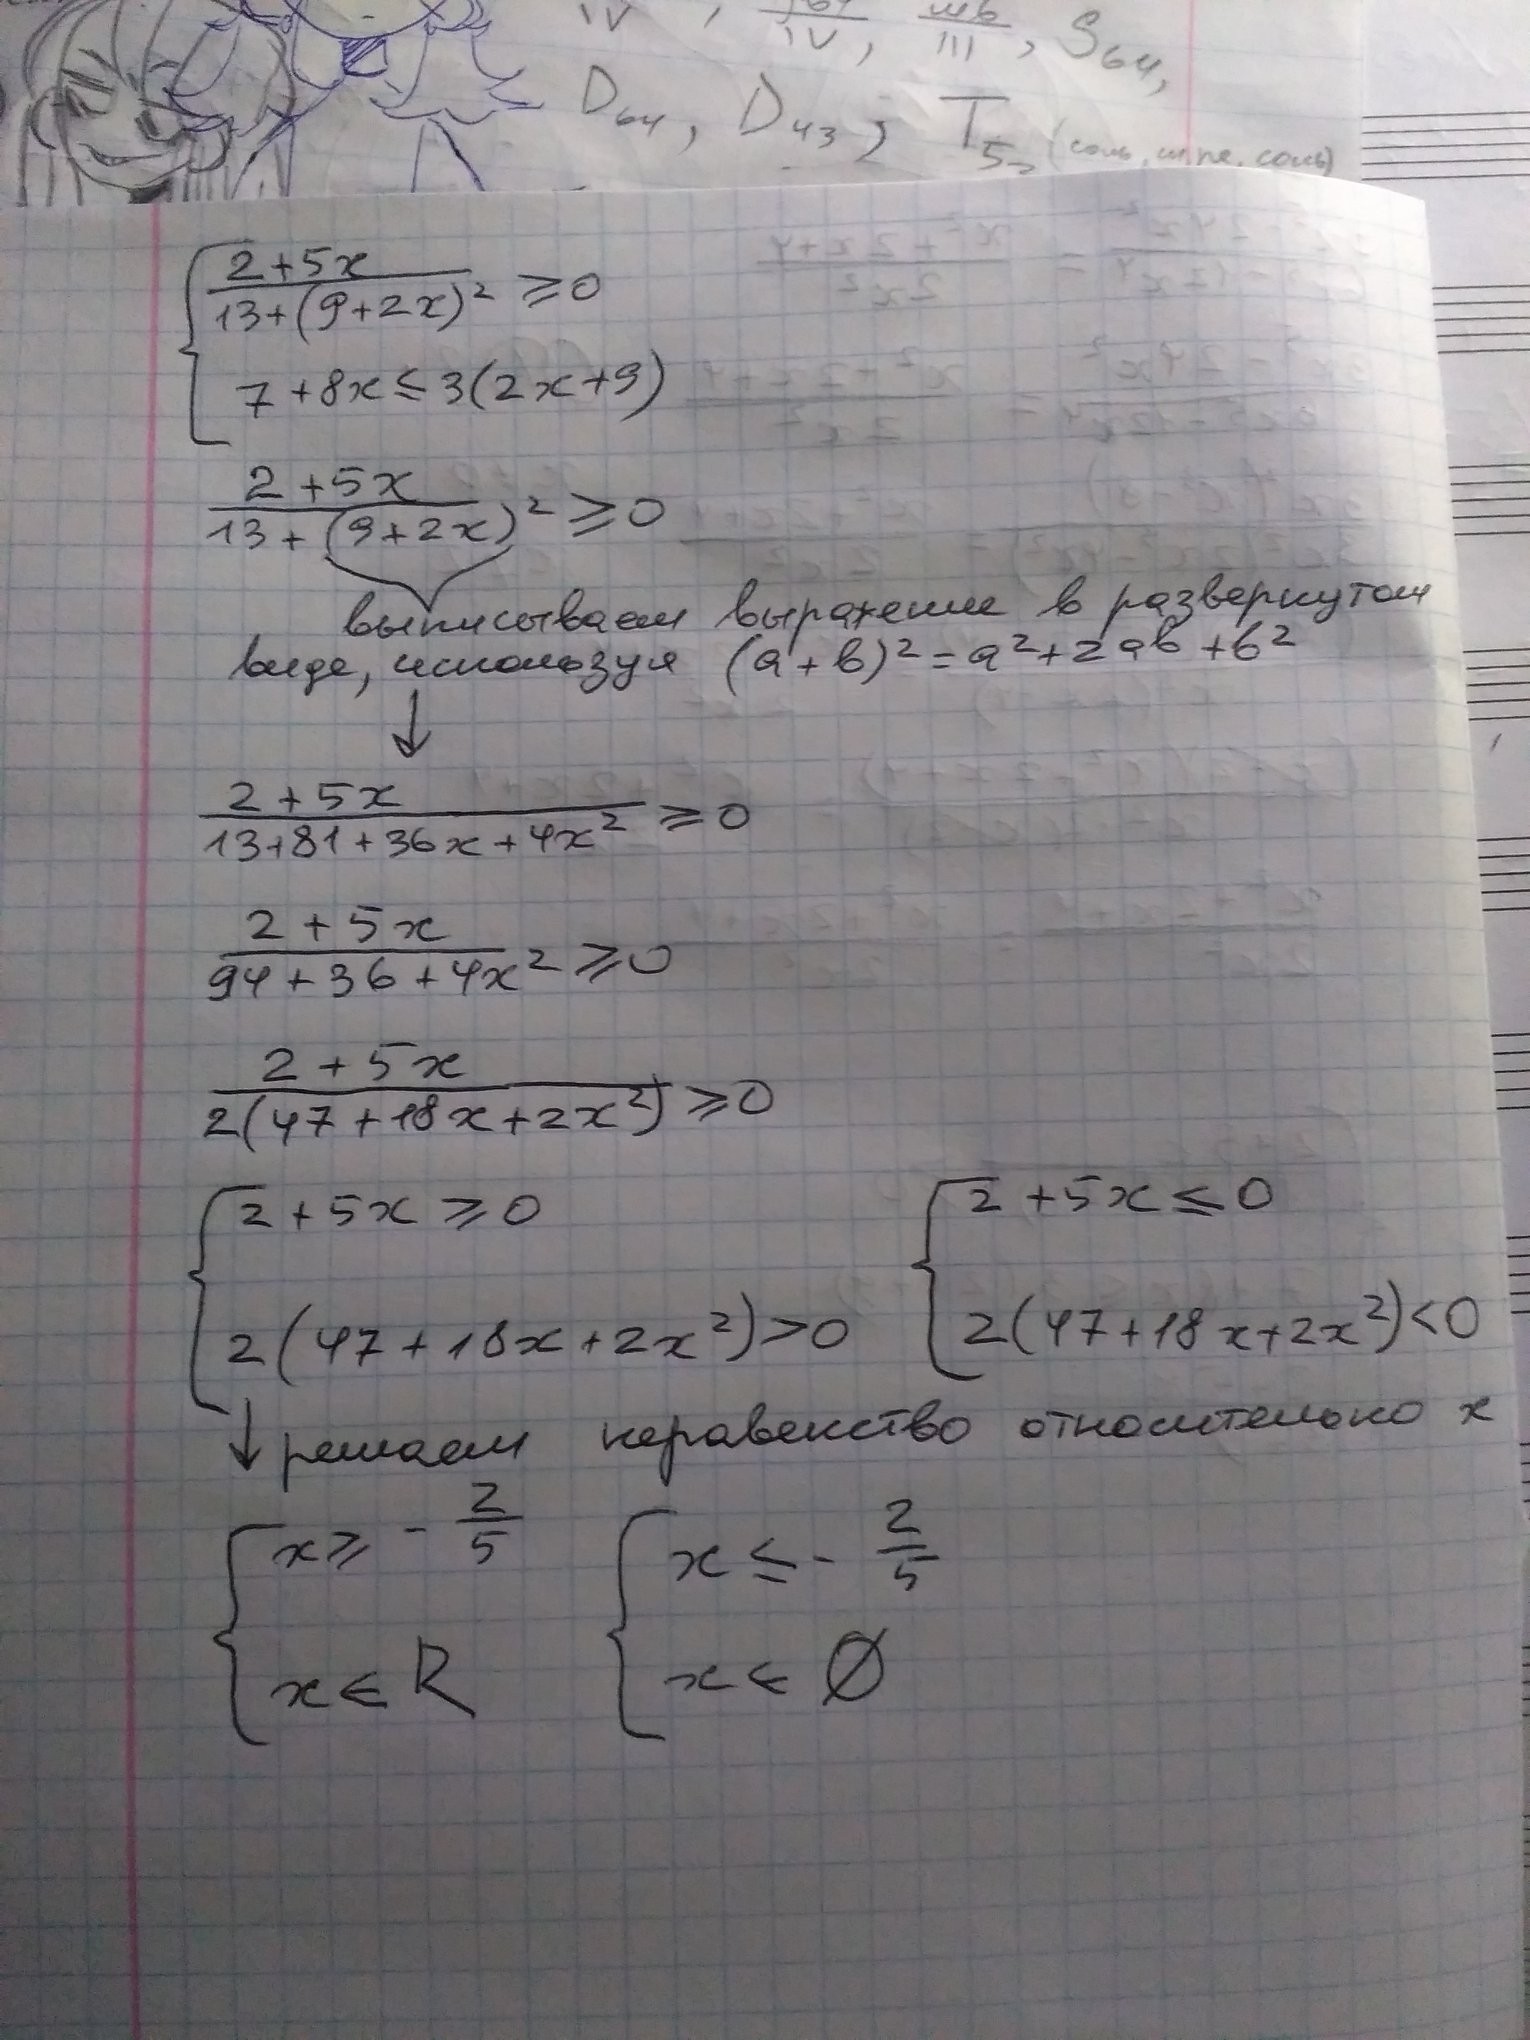 IV , IV, III , S₆₄,
D₆₄, D₄₃; T₅₃ (соль, ре, соль)
{ (2+5x)/(13+(9+2x)²) ≥ 0
7+8x ≤ 3(2x+9)
(2+5x)/(13+(9+2x)²) ≥ 0
выписываем выражение в развернутом
виде, используя (a+b)² = a²+2ab+b²
↓
(2+5x)/(13+81+36x+4x²) ≥ 0
(2+5x)/(94+36+4x²) ≥ 0
(2+5x)/(2(47+18x+2x²)) ≥ 0
{ 2+5x ≥ 0 { 2+5x ≤ 0
2(47+18x+2x²) > 0 2(47+18x+2x²) < 0
↓ решаем неравенство относительно x
{ x ≥ - 2/5 { x ≤ - 2/5
x ∈ R x ∈ Ø